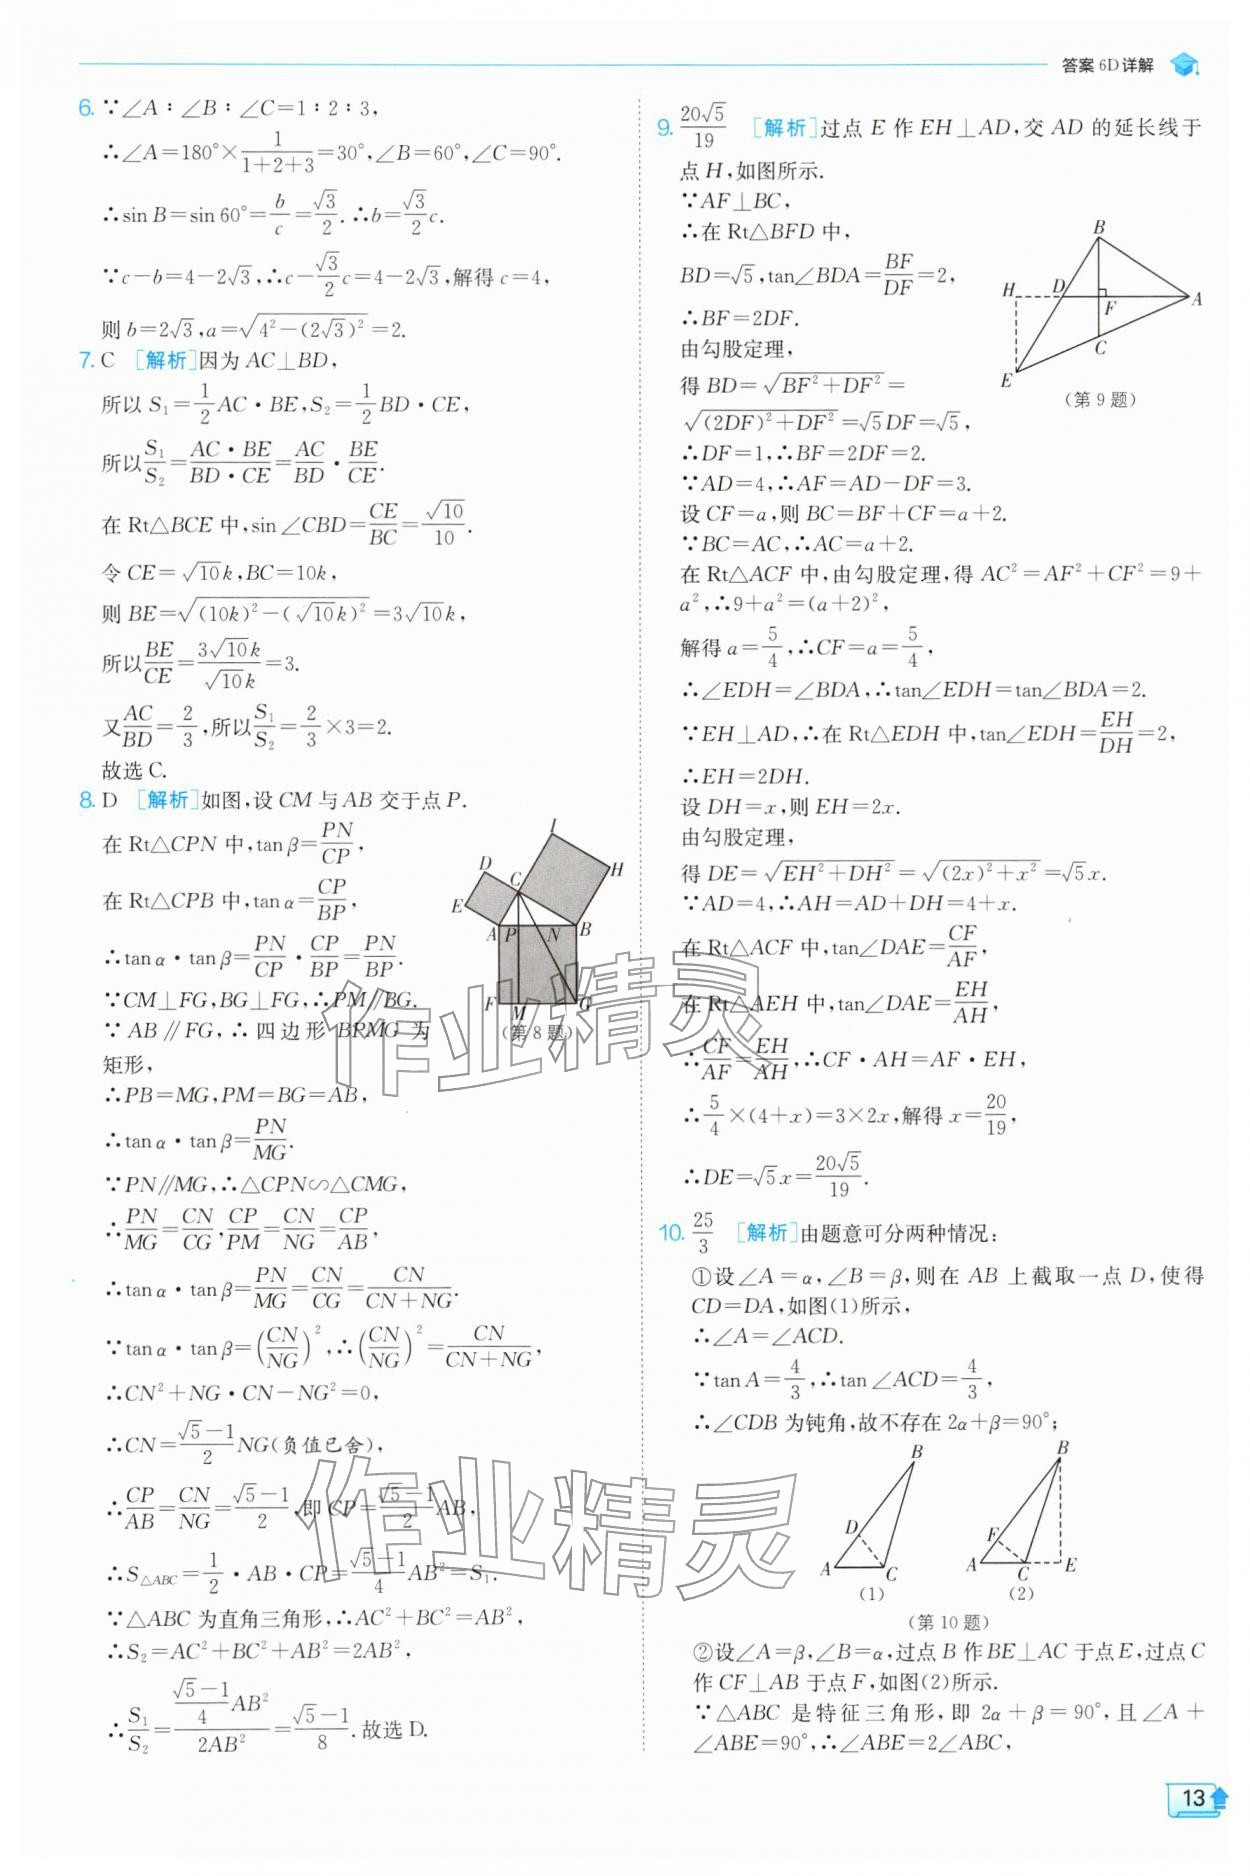 答案 6D详解
6. ∵∠A∶∠B∶∠C=1∶2∶3,
∴∠A=180°×1/(1+2+3)=30°,∠B=60°,∠C=90°.
∴sin B=sin 60°=b/c=√3/2.∴b=√3/2 c.
∵c-b=4-2√3,∴c-√3/2 c=4-2√3,解得c=4,
则b=2√3,a=√(4²-(2√3)²)=2.
7. C [解析]因为AC⊥BD,
所以S₁=1/2 AC·BE,S₂=1/2 BD·CE,
所以S₁/S₂=(AC·BE)/(BD·CE)=AC/BD·BE/CE.
在Rt△BCE中,sin∠CBD=CE/BC=√10/10.
令CE=√10k,BC=10k,
则BE=√((10k)²-(√10k)²)=3√10k,
所以BE/CE=3√10k/√10k=3.
又AC/BD=2/3,所以S₁/S₂=2/3×3=2.
故选C.
8. D [解析]如图,设CM与AB交于点P.
在Rt△CPN中,tanβ=PN/CP,
在Rt△CPB中,tanα=CP/BP,
∴tanα·tanβ=PN/CP·CP/BP=PN/BP.
∵CM⊥FG,BG⊥FG,∴PM∥BG.
∵AB∥FG,∴四边形BPMG为
矩形,
∴PB=MG,PM=BG=AB,
∴tanα·tanβ=PN/MG.
∵PN∥MG,∴△CPN∽△CMG,
∴PN/MG=CN/CG,CP/PM=CN/NG=CP/AB,
∴tanα·tanβ=PN/MG=CN/CG=CN/(CN+NG).
∵tanα·tanβ=(CN/NG)²,∴(CN/NG)²=CN/(CN+NG),
∴CN²+NG·CN-NG²=0,
∴CN=(√5-1)/2 NG(负值已舍),
∴CP/AB=CN/NG=(√5-1)/2,即CP=(√5-1)/2 AB,
∴S△ABC=1/2·AB·CP=(√5-1)/4 AB²=S₁.
∵△ABC为直角三角形,∴AC²+BC²=AB²,
∴S₂=AC²+BC²+AB²=2AB²,
∴S₁/S₂=((√5-1)/4 AB²)/(2AB²)=(√5-1)/8.故选D.
I
D
C
H
E
A P N B
F M G
(第8题)
9. 20√5/19 [解析]过点E作EH⊥AD,交AD的延长线于
点H,如图所示.
∵AF⊥BC,
∴在Rt△BFD中,
BD=√5,tan∠BDA=BF/DF=2,
∴BF=2DF.
由勾股定理,
得BD=√(BF²+DF²)=
√((2DF)²+DF²)=√5DF=√5,
∴DF=1,∴BF=2DF=2.
∵AD=4,∴AF=AD-DF=3.
设CF=a,则BC=BF+CF=a+2.
∵BC=AC,∴AC=a+2.
在Rt△ACF中,由勾股定理,得AC²=AF²+CF²=9+
a²,∴9+a²=(a+2)²,
解得a=5/4,∴CF=a=5/4,
∴∠EDH=∠BDA,∴tan∠EDH=tan∠BDA=2.
∵EH⊥AD,∴在Rt△EDH中,tan∠EDH=EH/DH=2,
∴EH=2DH.
设DH=x,则EH=2x.
由勾股定理,
得DE=√(EH²+DH²)=√((2x)²+x²)=√5x.
∵AD=4,∴AH=AD+DH=4+x.
在Rt△ACF中,tan∠DAE=CF/AF,
在Rt△AEH中,tan∠DAE=EH/AH,
∴CF/AF=EH/AH,∴CF·AH=AF·EH,
∴5/4×(4+x)=3×2x,解得x=20/19,
∴DE=√5x=20√5/19.
B
H D F A
C
E
(第9题)
10. 25/3 [解析]由题意可分两种情况:
①设∠A=α,∠B=β,则在AB上截取一点D,使得
CD=DA,如图(1)所示,
∴∠A=∠ACD.
∵tan A=4/3,∴tan∠ACD=4/3,
∴∠CDB为钝角,故不存在2α+β=90°;
B
D
A C
(1)
B
F
A C E
(2)
(第10题)
②设∠A=β,∠B=α,过点B作BE⊥AC于点E,过点C
作CF⊥AB于点F,如图(2)所示.
∵△ABC是特征三角形,即2α+β=90°,且∠A+
∠ABE=90°,∴∠ABE=2∠ABC,
13
作业精灵
作业精灵